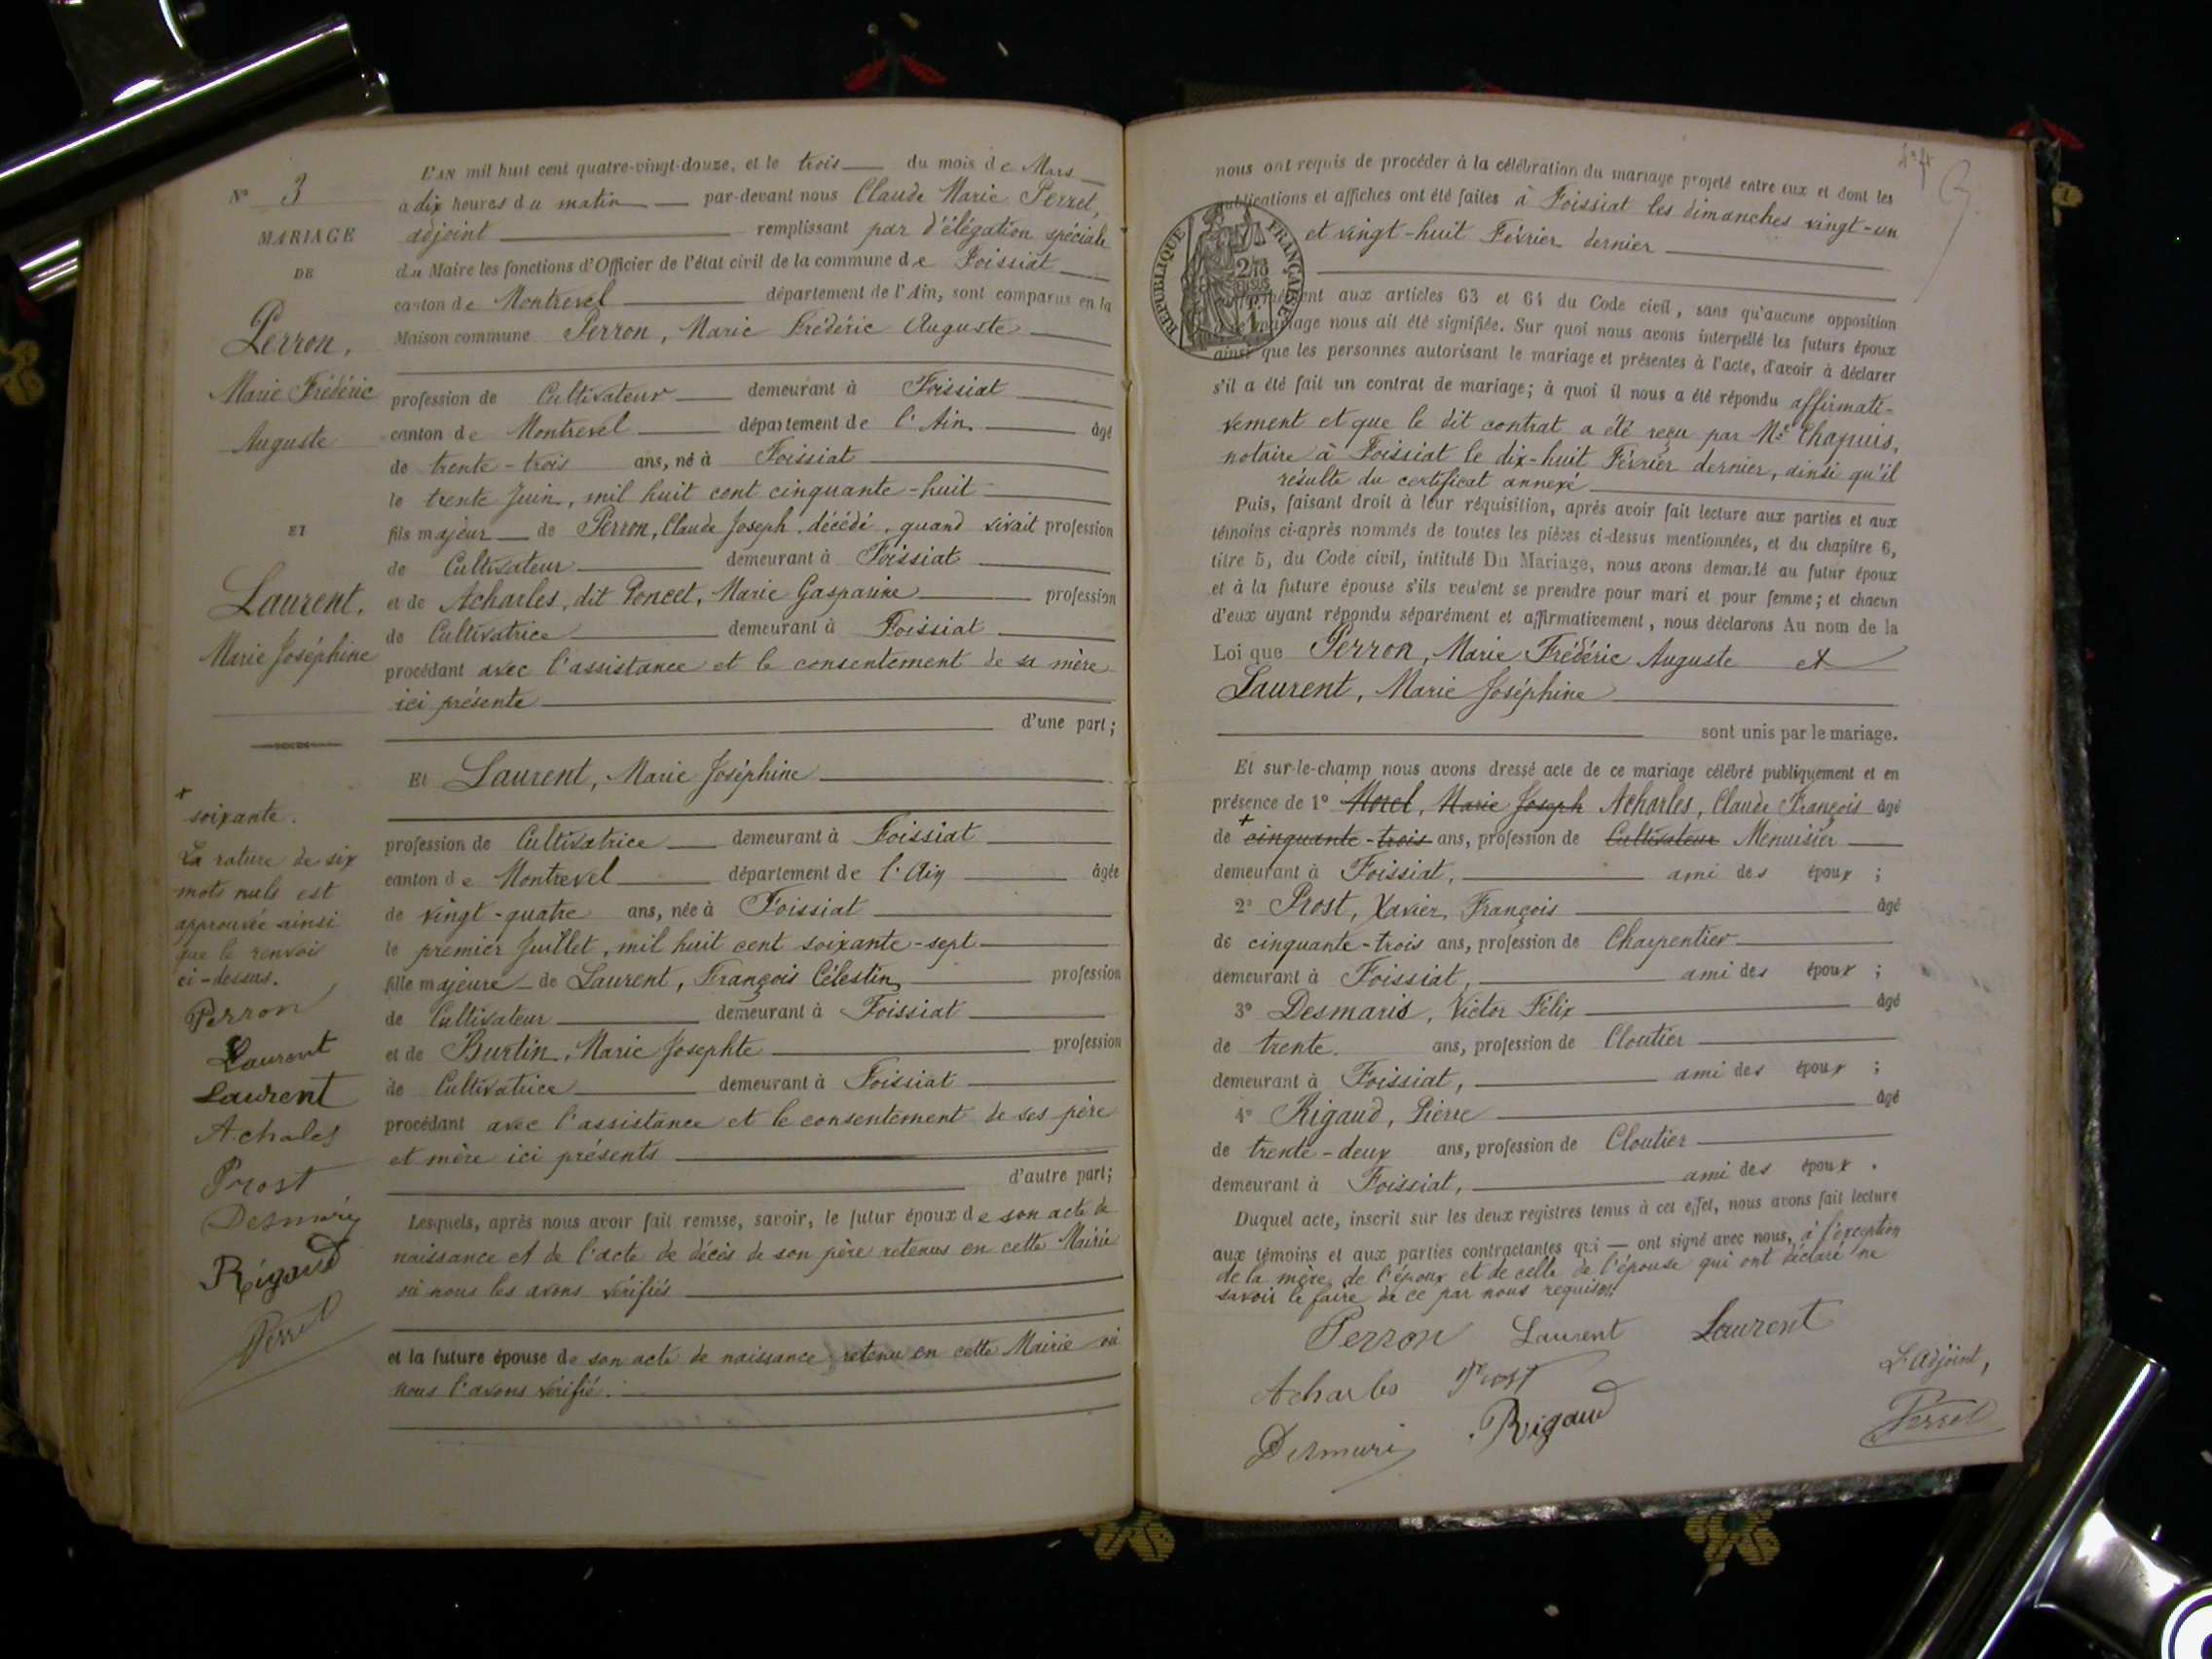 N° 3
MARIAGE
DE
Perron,
Marie Frédéric
Auguste
ET
Laurent,
Marie Joséphine
+
soixante.
La rature de six
mots nuls est
approuvée ainsi
que le renvoi
ci-dessus.
Perron
Laurent
Laurent
Acharles
Prost
Desmaris
Rigaud
Perret
L'AN mil huit cent quatre-vingt-douze, et le trois du mois de Mars
à dix heures du matin par-devant nous Claude Marie Perret,
adjoint remplissant par délégation spéciale
du Maire les fonctions d'Officier de l'état civil de la commune de Foissiat
canton de Montrevel département de l'Ain, sont comparus en la
Maison commune Perron, Marie Frédéric Auguste
profession de Cultivateur demeurant à Foissiat
canton de Montrevel département de l'Ain âgé
de trente-trois ans, né à Foissiat
le trente Juin, mil huit cent cinquante-huit
fils majeur de Perron, Claude Joseph, décédé, quand vivait profession
de Cultivateur demeurant à Foissiat
et de Acharles, dit Poncet, Marie Gasparine profession
de Cultivatrice demeurant à Foissiat
procédant avec l'assistance et le consentement de sa mère
ici présente
d'une part;
Et Laurent, Marie Joséphine
profession de Cultivatrice demeurant à Foissiat
canton de Montrevel département de l'Ain âgée
de vingt-quatre ans, née à Foissiat
le premier Juillet, mil huit cent soixante-sept
fille majeure de Laurent, François Célestin profession
de Cultivateur demeurant à Foissiat
et de Burtin, Marie Josephte profession
de Cultivatrice demeurant à Foissiat
procédant avec l'assistance et le consentement de ses père
et mère ici présents
d'autre part;
Lesquels, après nous avoir fait remise, savoir, le futur époux de son acte de
naissance et de l'acte de décès de son père retenus en cette Mairie
où nous les avons vérifiés
et la future épouse de son acte de naissance retenu en cette Mairie où
nous l'avons vérifié.
nous ont requis de procéder à la célébration du mariage projeté entre eux et dont les
publications et affiches ont été faites à Foissiat les dimanches vingt-un
et vingt-huit Février dernier
REPUBLIQUE FRANÇAISE
conformément aux articles 63 et 64 du Code civil, sans qu'aucune opposition
à ce mariage nous ait été signifiée. Sur quoi nous avons interpellé les futurs époux
ainsi que les personnes autorisant le mariage et présentes à l'acte, d'avoir à déclarer
s'il a été fait un contrat de mariage; à quoi il nous a été répondu affirmati-
vement et que le dit contrat a été reçu par Me Chapuis,
notaire à Foissiat le dix-huit Février dernier, ainsi qu'il
résulte du certificat annexé
Puis, faisant droit à leur réquisition, après avoir fait lecture aux parties et aux
témoins ci-après nommés de toutes les pièces ci-dessus mentionnées, et du chapitre 6,
titre 5, du Code civil, intitulé Du Mariage, nous avons demandé au futur époux
et à la future épouse s'ils veulent se prendre pour mari et pour femme; et chacun
d'eux ayant répondu séparément et affirmativement, nous déclarons Au nom de la
Loi que Perron, Marie Frédéric Auguste et
Laurent, Marie Joséphine
sont unis par le mariage.
Et sur-le-champ nous avons dressé acte de ce mariage célébré publiquement et en
présence de 1° Morel, Marie Joseph Acharles, Claude François âgé
de + cinquante-trois ans, profession de Cultivateur Menuisier
demeurant à Foissiat, ami des époux ;
2° Prost, Xavier François âgé
de cinquante-trois ans, profession de Charpentier
demeurant à Foissiat, ami des époux ;
3° Desmaris, Victor Félix âgé
de trente ans, profession de Cloutier
demeurant à Foissiat, ami des époux ;
4° Rigaud, Pierre âgé
de trente-deux ans, profession de Cloutier
demeurant à Foissiat, ami des époux.
Duquel acte, inscrit sur les deux registres tenus à cet effet, nous avons fait lecture
aux témoins et aux parties contractantes qui — ont signé avec nous, à l'exception
de la mère de l'époux et de celle de l'épouse qui ont déclaré ne
savoir le faire de ce par nous requises.
Perron Laurent Laurent
Acharles Prost L'adjoint,
Desmaris Rigaud Perret